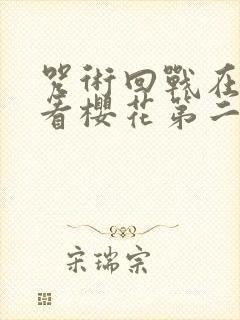 咒術回戰在
看櫻花第二
宋瑞宗